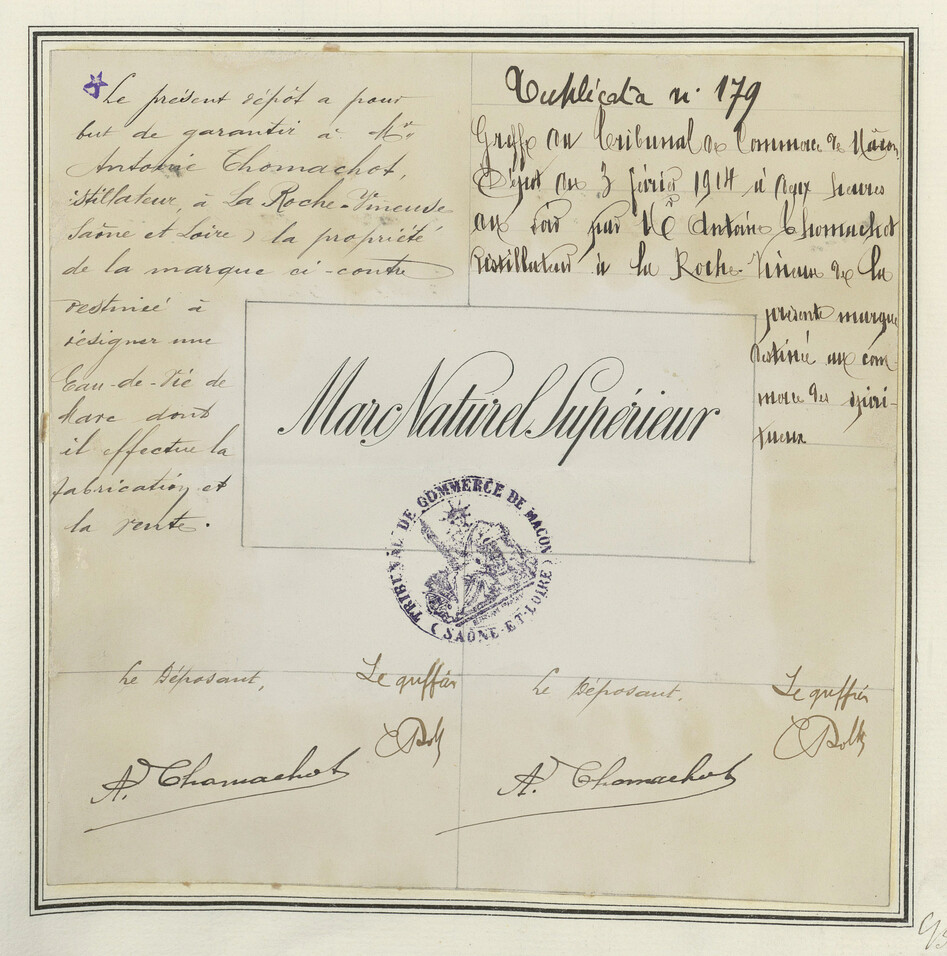 Le présent dépôt a pour
but de garantir à Mr
Antoine Thomachot,
istillateur, à La Roche-Vineuse
Saône et Loire) la propriété
de la marque ci-contre
destinée à
désigner une
Eau-de-Vie de
Marc dont
il effectue la
fabrication et
la vente.
Duplicata n° 179
Greffe du Tribunal de Commerce de Mâcon
Dépôt du 3 février 1914 à deux heures
du soir par Mr Antoine Thomachot
distillateur à la Roche-Vineuse de la
présente marque
destinée au com-
merce des spiri-
tueux
Marc Naturel Supérieur
TRIBUNAL DE COMMERCE DE MACON
(SAÔNE-ET-LOIRE)
Le Déposant,
Le greffier
A. Thomachot
Le Déposant.
Le greffier
A. Thomachot